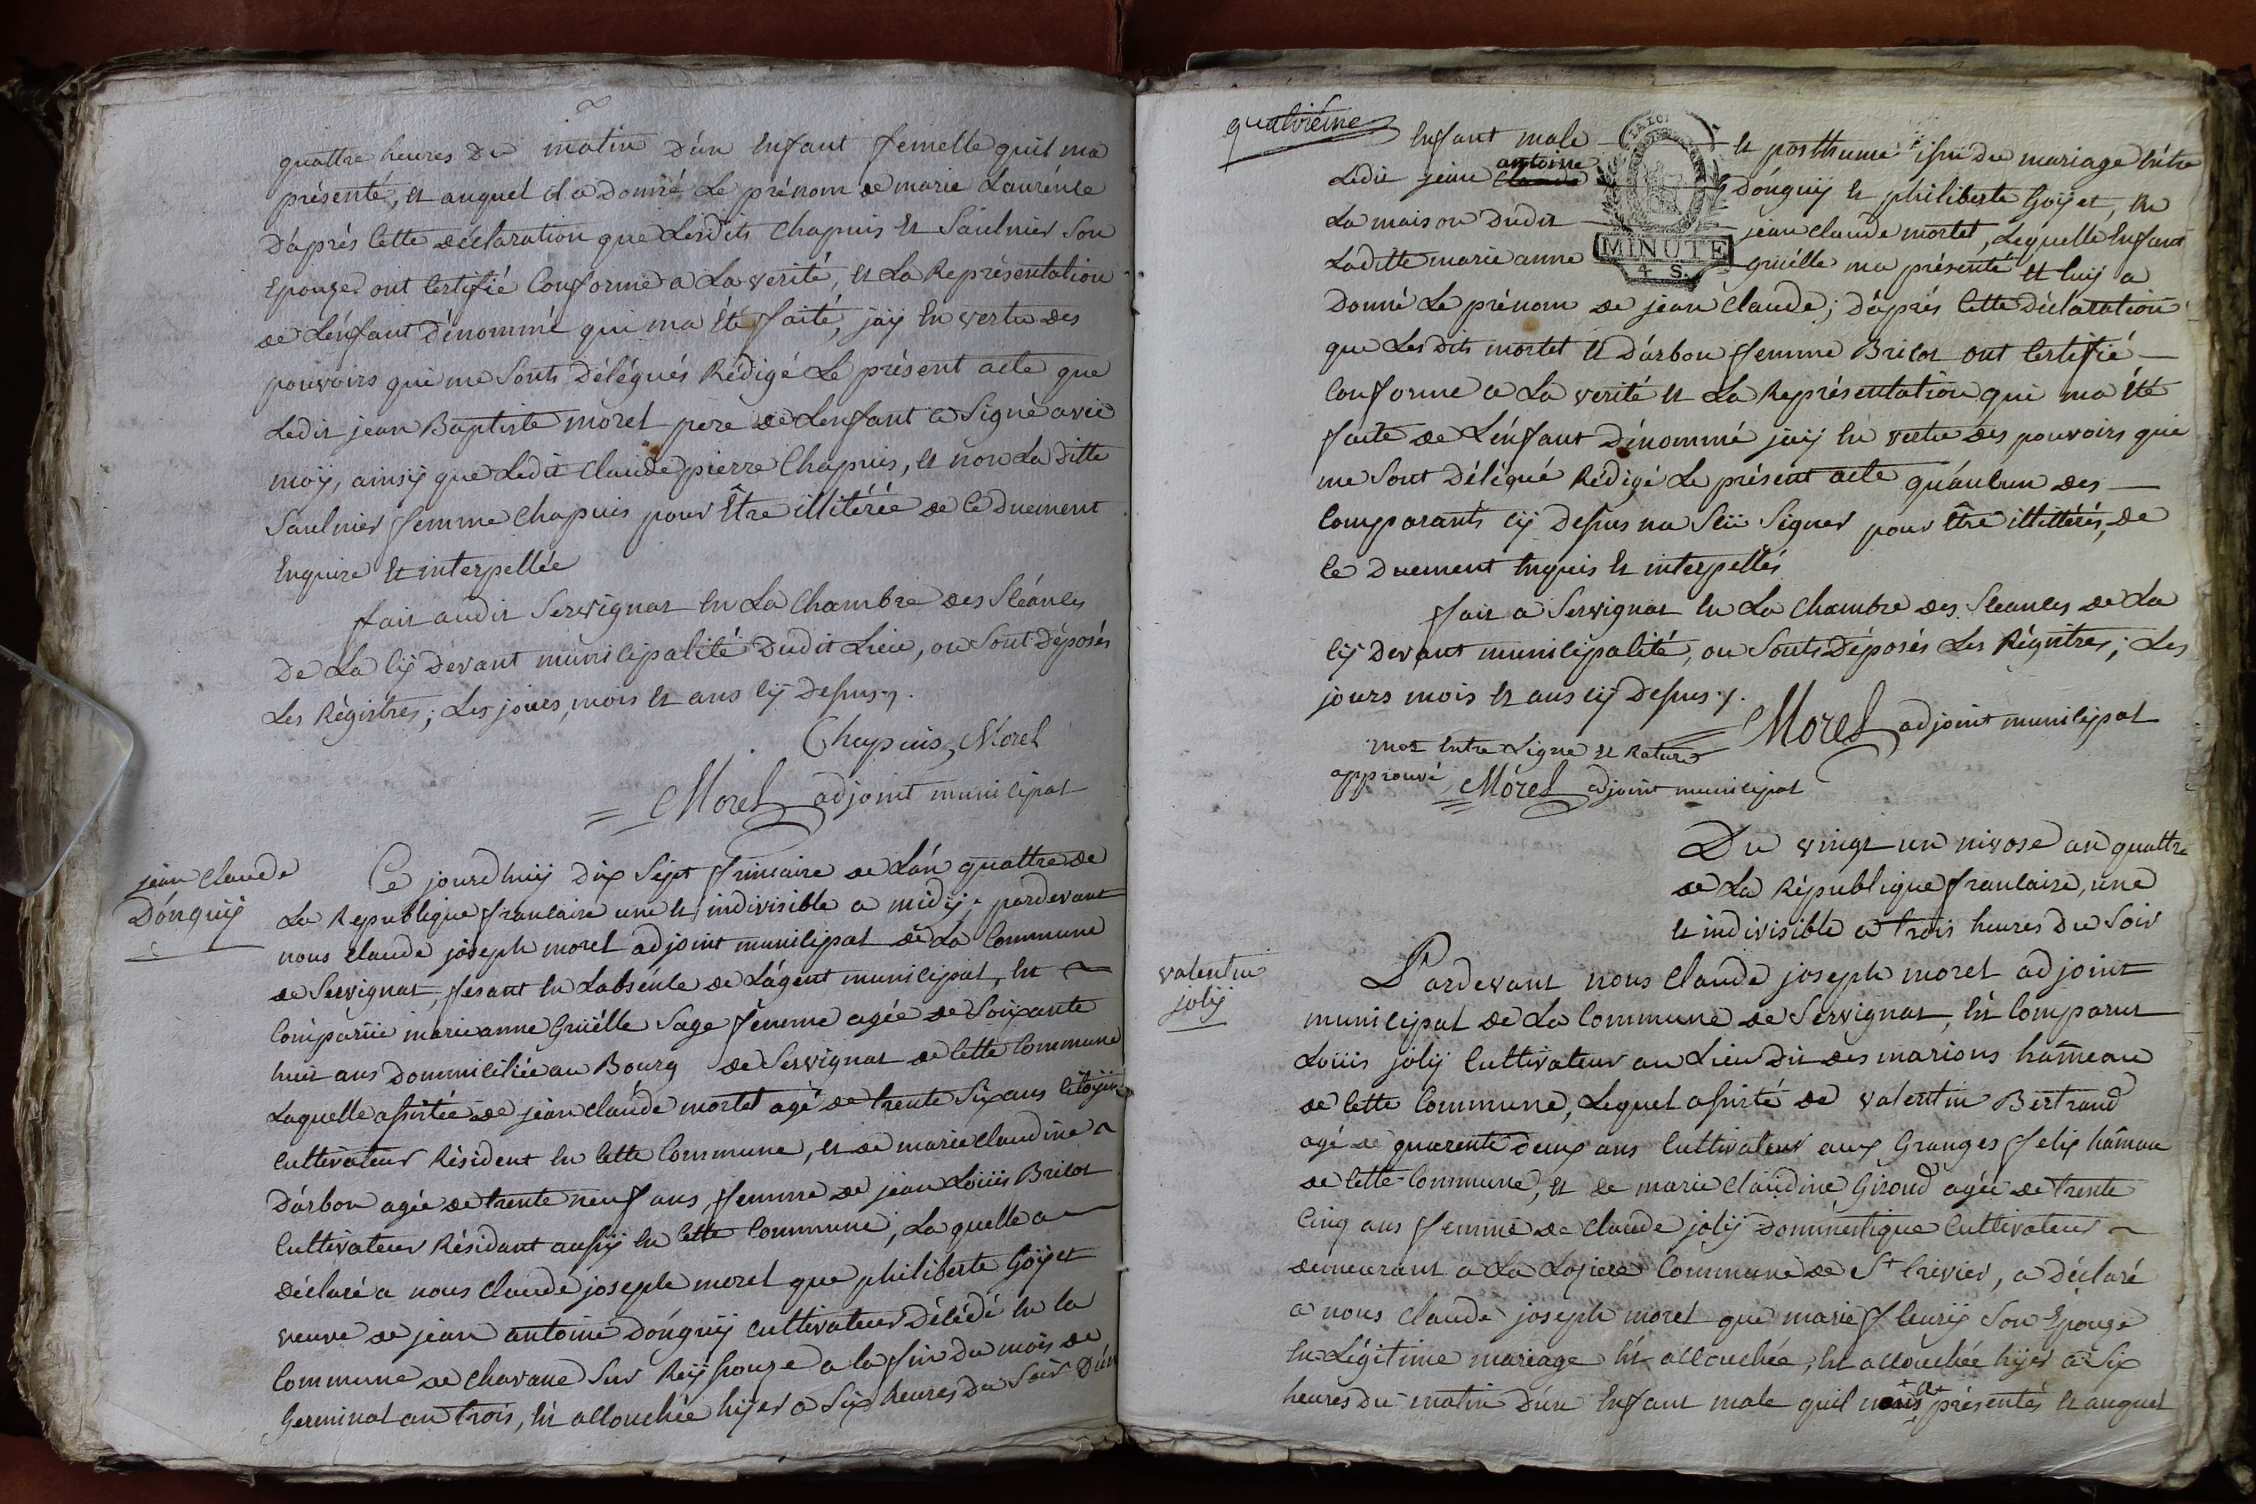 quattre heures du matin d'un Enfant femelle quil ma
présenté, et auquel il a donné le prénom de marie Laurence
d'aprés cette déclaration que lesdits Chapuis et Saulnier son
Epouze ont certifié conforme a la verité, et la Représentation
de l'enfant dénommé qui ma été faite, jaÿ en vertu des
pouvoirs qui me sonts délégués Rédigé le présent acte que
ledit jean Baptiste morel pere de l'enfant a signé avec
moÿ, ainsÿ que ledit claude pierre Chapuis, et non laditte
Saulnier femme chapuis pour être illitérée de ce duement
Enquise et interpellée
fait audit Servignat en la Chambre des Séances
de la cÿ devant municipalité dudit Lieu, ou sont déposés
les Régistres; les jours, mois et ans cÿ dessus.
Chapuis, Morel
Morel adjoint municipal
jean Claude
Donguÿ
Ce jourdhuÿ dix sept frimaire de l'an quattre de
la Republique francaise une et indivisible a midÿ, pardevant
nous claude joseph morel adjoint municipal de la Commune
de Servignat, fesant en l'absence de l'agent municipal, est
comparüe marie anne Gruëlle sage femme agée de soixante
huit ans dommiciliée au Bourg de Servignat de cette Commune
laquelle assistée de jean claude mortel agé de trente six ans citoÿen
cultivateur Résident en cette commune, et de marie claudine
d'arbon agée de trente neuf ans, femme de jean Loüis Bricot
cultivateur Résidant aussÿ en cette commune, la quelle a
déclaré a nous claude joseph morel que philiberte Goÿet
veuve de jean antoine donguÿ cultivateur décédé en la
commune de chavane sur Reÿssouze a la fin du mois de
Germinal an trois, est accouchée hÿer a six heures du soir d'un
quatrième
Enfant male et posthume issu du mariage entre
ledit jean claude antoine Donguÿ et philiberte Goÿet, en
la maison dudit jean claude mortel, lequelle Enfant
laditte marie anne gruëlle ma présenté et luÿ a
MINUTE
4 S.
donné le prénom de jean claude; d'aprés cette déclaration
que lesdits mortel et d'arbon femme Bricot ont certifié
conforme a la verité et la Représentation qui ma été
faite de l'énfant dénommé jaÿ en vertu des pouvoirs qui
me sont délégué Rédigé le présent acte qu'aucun des
comparants cÿ dessus na sçü signer pour être illittérés, de
ce duement enquis et interpellés
fait a Servignat en la Chambre des Séances de la
cÿ devant municipalité, ou sonts déposés les Régistres; les
jours mois et ans cÿ dessus.
Morel adjoint municipal
mot entre ligne et Raturé
approuvé Morel adjoint municipal
Du vingt un nivose an quattre
de la République francaise, une
et indivisible a trois heures du soir
valentin
jolÿ
Pardevant nous claude joseph morel adjoint
municipal de la commune de Servignat, est comparut
Loüis jolÿ cultivateur au lieu dit des marions hâmeau
de cette commune, lequel assisté de valentin Bertrand
agé de quarente deux ans cultivateur aux Granges felix hâmau
de cette commune, et de marie claudine Giroud agée de trente
cinq ans femme de claude jolÿ domméstique cultivateur
demeurant a la Commune de St trivier, a déclaré
a nous claude joseph morel que marie fleurÿ son Epouze
en légitime mariage est accouchée, est accouchée hÿer a six
heures du matin d'un Enfant male quil nous a présentés et auquel